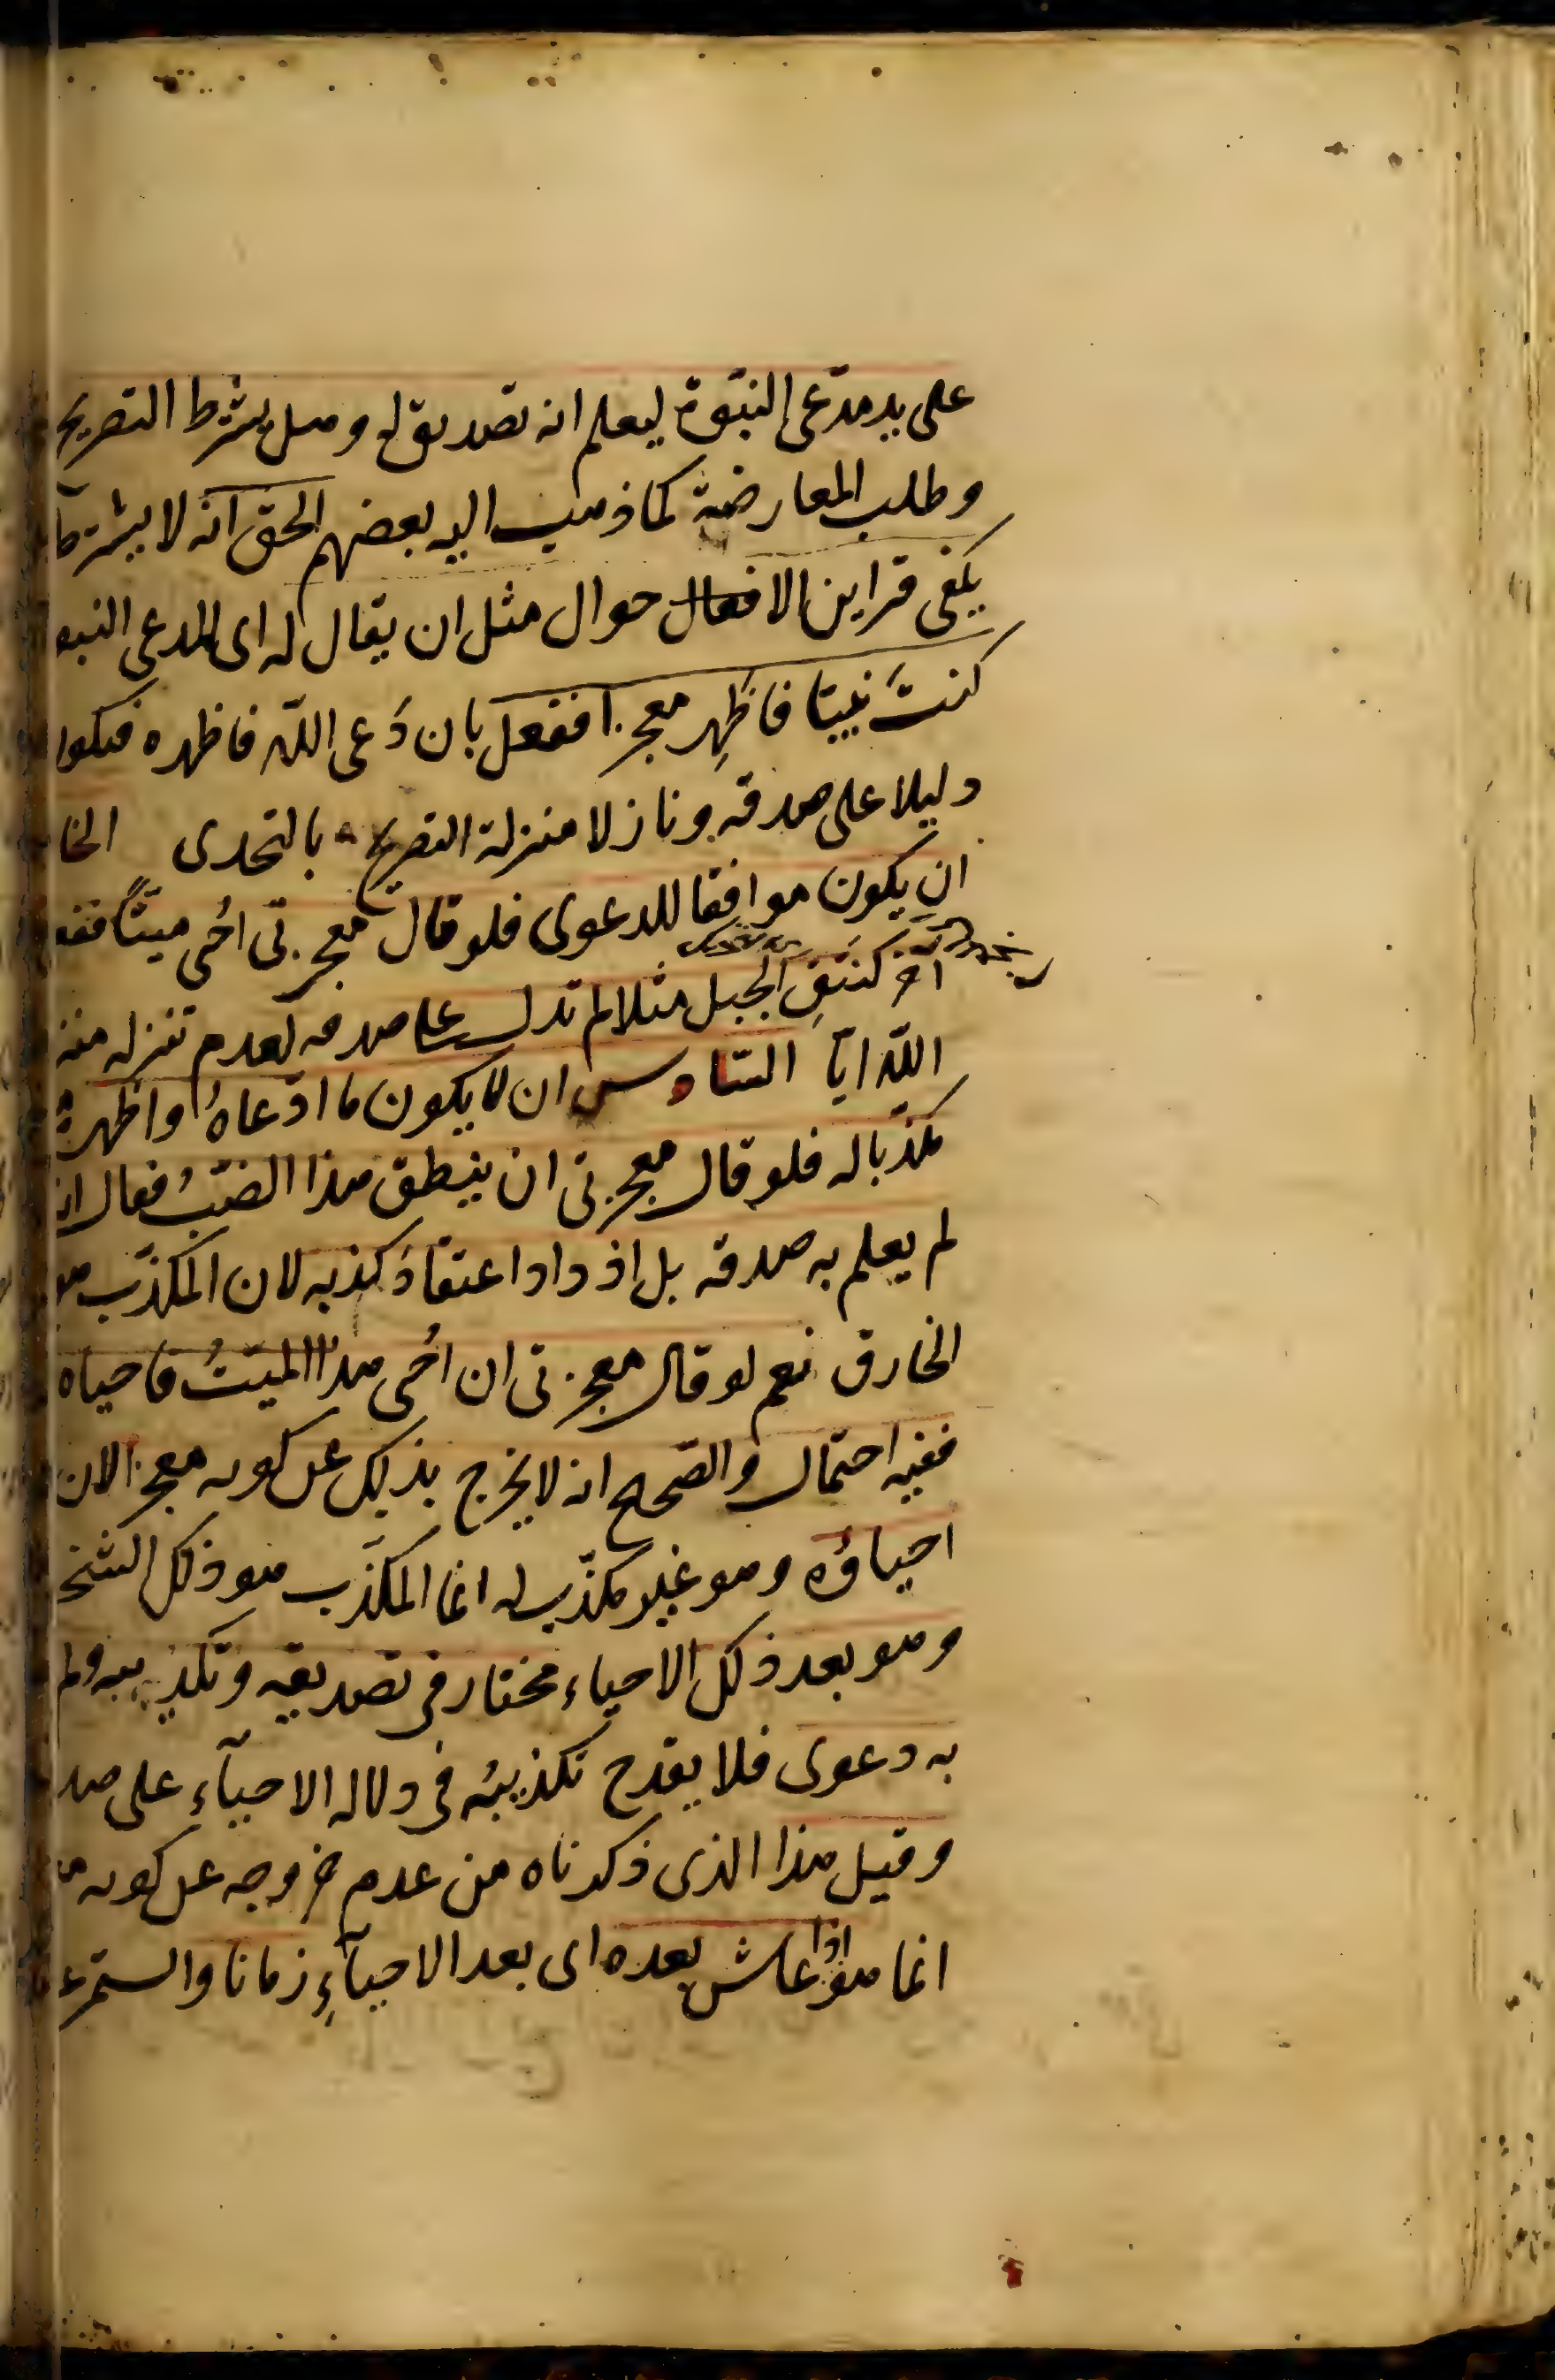 على يد مدّعى النبّوة ليعلم انه تصديق له وهل يشرط التصريح
وطلب المعارضة كما ذهب اليه بعضهم الحق انه لا يشترط
يكفى قراين الاحوال مثل ان يقال له اى لمدعى النبو
كنتَ نبيّا فاظهِر معجزا ففعل بان دَعى اللّه فاظهره فيكون
دليلا على صدقه ونازلا منزلة التصريح بالتحدى الخا
ان يكون موافقا للدعوى فلو قال معجزتى احُى ميتًّا ففع
آخر كنَتقِ الجبل مثلا لم تدل على صدقه لعدم تنزله منز
اللّه ايّا السّادس ان لا يكون ما ادّعاهُ واظهره
مكذّبا له فلو قال معجزتى ان ينطق هذا الضبّ فقال ان
لم يعلم به صدقه بل اذ داد اعتقادَ كذبه لان المكذّب هو
الخارق نعم لو قال معجزتى ان احُى هذا الميّتُ فاحياه
ففيه احتمال والصّحيح انه لا يخرج بذلك عن كونه معجزا لان
احياؤه وهو غير مكذّب له انما المكذّب هو ذلك الشخ
وهو بعد ذلك الاحياء مختار فى تصديقه وتكذيبه ولم
به دعوى فلا يقدح تكذيبُه فى دلاله الاحيآءِ على صد
وقيل هذا الذى ذكرناه من عدم خروجه عن كونه
انما هو اذا عاش بعده اى بعد الاحيآءِ زمانا واستمر